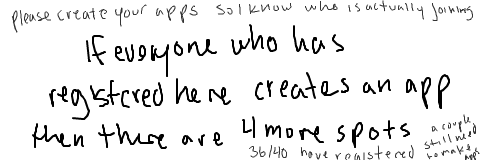 please create your apps so I know who is actually joining
If everyone who has
registered here creates an app
then there are 4 more spots
36/40 have registered
a couple
still need
to make
apps